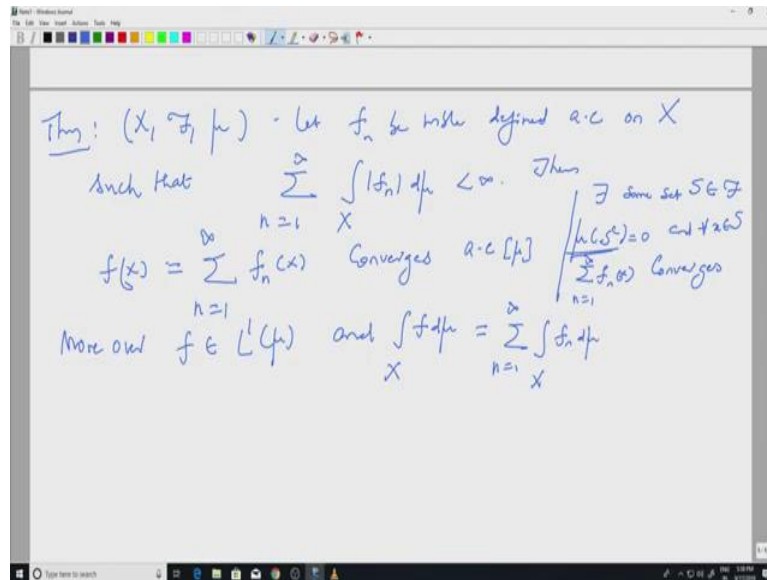 Note1 - Windows Journal
File Edit View Insert Actions Tools Help
Thm: (X, F, μ) - Let f_n be mble defined a.e on X
such that ∑_{n=1}^∞ ∫_X |f_n| dμ < ∞. Then
f(x) = ∑_{n=1}^∞ f_n(x) Converges a.e [μ]
∃ some set S ∈ F
μ(S^c) = 0 and ∀ x ∈ S
∑_{n=1}^∞ f_n(x) Converges
More over f ∈ L^1(μ) and ∫_X f dμ = ∑_{n=1}^∞ ∫_X f_n dμ
Type here to search